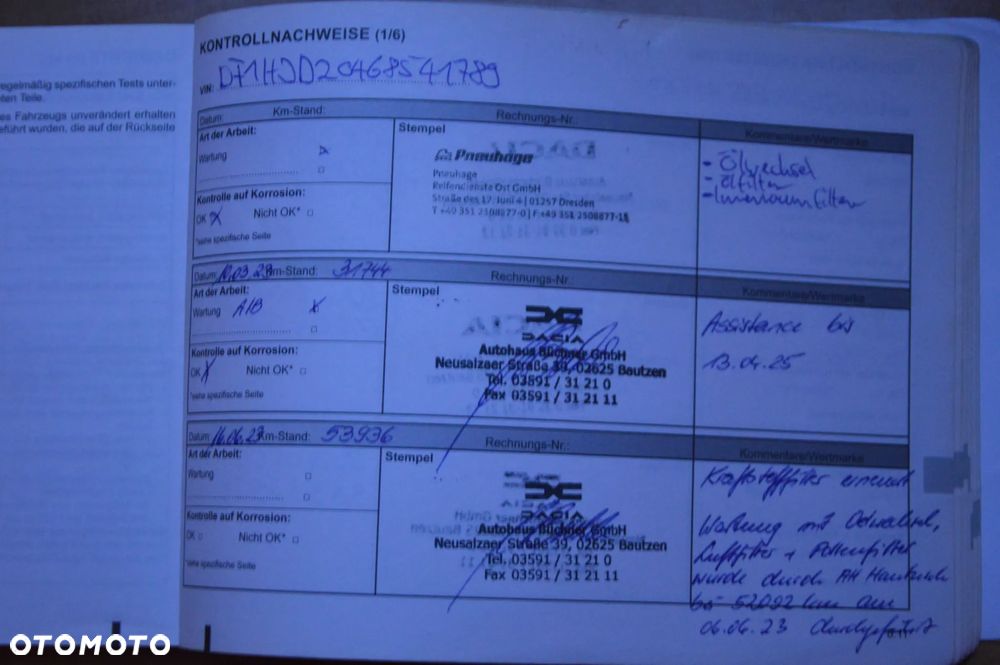 egelmäßig spezifischen Tests unter-
ten Teile.
es Fahrzeugs unverändert erhalten
eführt wurden, die auf der Rückseite
KONTROLLNACHWEISE (1/6)
VIN:
Datum: Km-Stand: Rechnungs-Nr.:
Art der Arbeit: Stempel Kommentare/Wertmarke
Wartung
Pneuhage
Pneuhage
Reifendienste Ost GmbH
Straße des 17. Juni 4 | 01257 Dresden
T +49 351 2508877-0 | F +49 351 2508877-18
- Ölwechsel
- Ölfilter
- Innenraumfilter
Kontrolle auf Korrosion:
OK X Nicht OK*
*siehe spezifische Seite
Datum: 10.03.23 Km-Stand: 31744 Rechnungs-Nr
Art der Arbeit: Stempel Kommentare/Wertmarke
Wartung A/B X
DACIA
Autohaus Büchner GmbH
Neusalzaer Straße 39, 02625 Bautzen
Tel. 03591 / 31 21 0
Fax 03591 / 31 21 11
Assistance bis
13.04.25
Kontrolle auf Korrosion:
OK X Nicht OK*
*siehe spezifische Seite
Datum: 16.06.23 Km-Stand: 53936 Rechnungs-Nr.:
Art der Arbeit: Stempel Kommentare/Wertmarke
Wartung
DACIA
Autohaus Büchner GmbH
Neusalzaer Straße 39, 02625 Bautzen
Tel. 03591 / 31 21 0
Fax 03591 / 31 21 11
Kraftstofffilter erneuert
Wartung mit Ölwechsel,
Luftfilter + Pollenfilter
wurde durch AH
bei 52092 km am
06.06.23 durchgeführt
Kontrolle auf Korrosion:
OK Nicht OK*
*siehe spezifische Seite
OTOMOTO